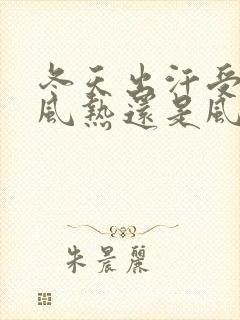 冬天出汗受
風熱還是風
朱晨麗